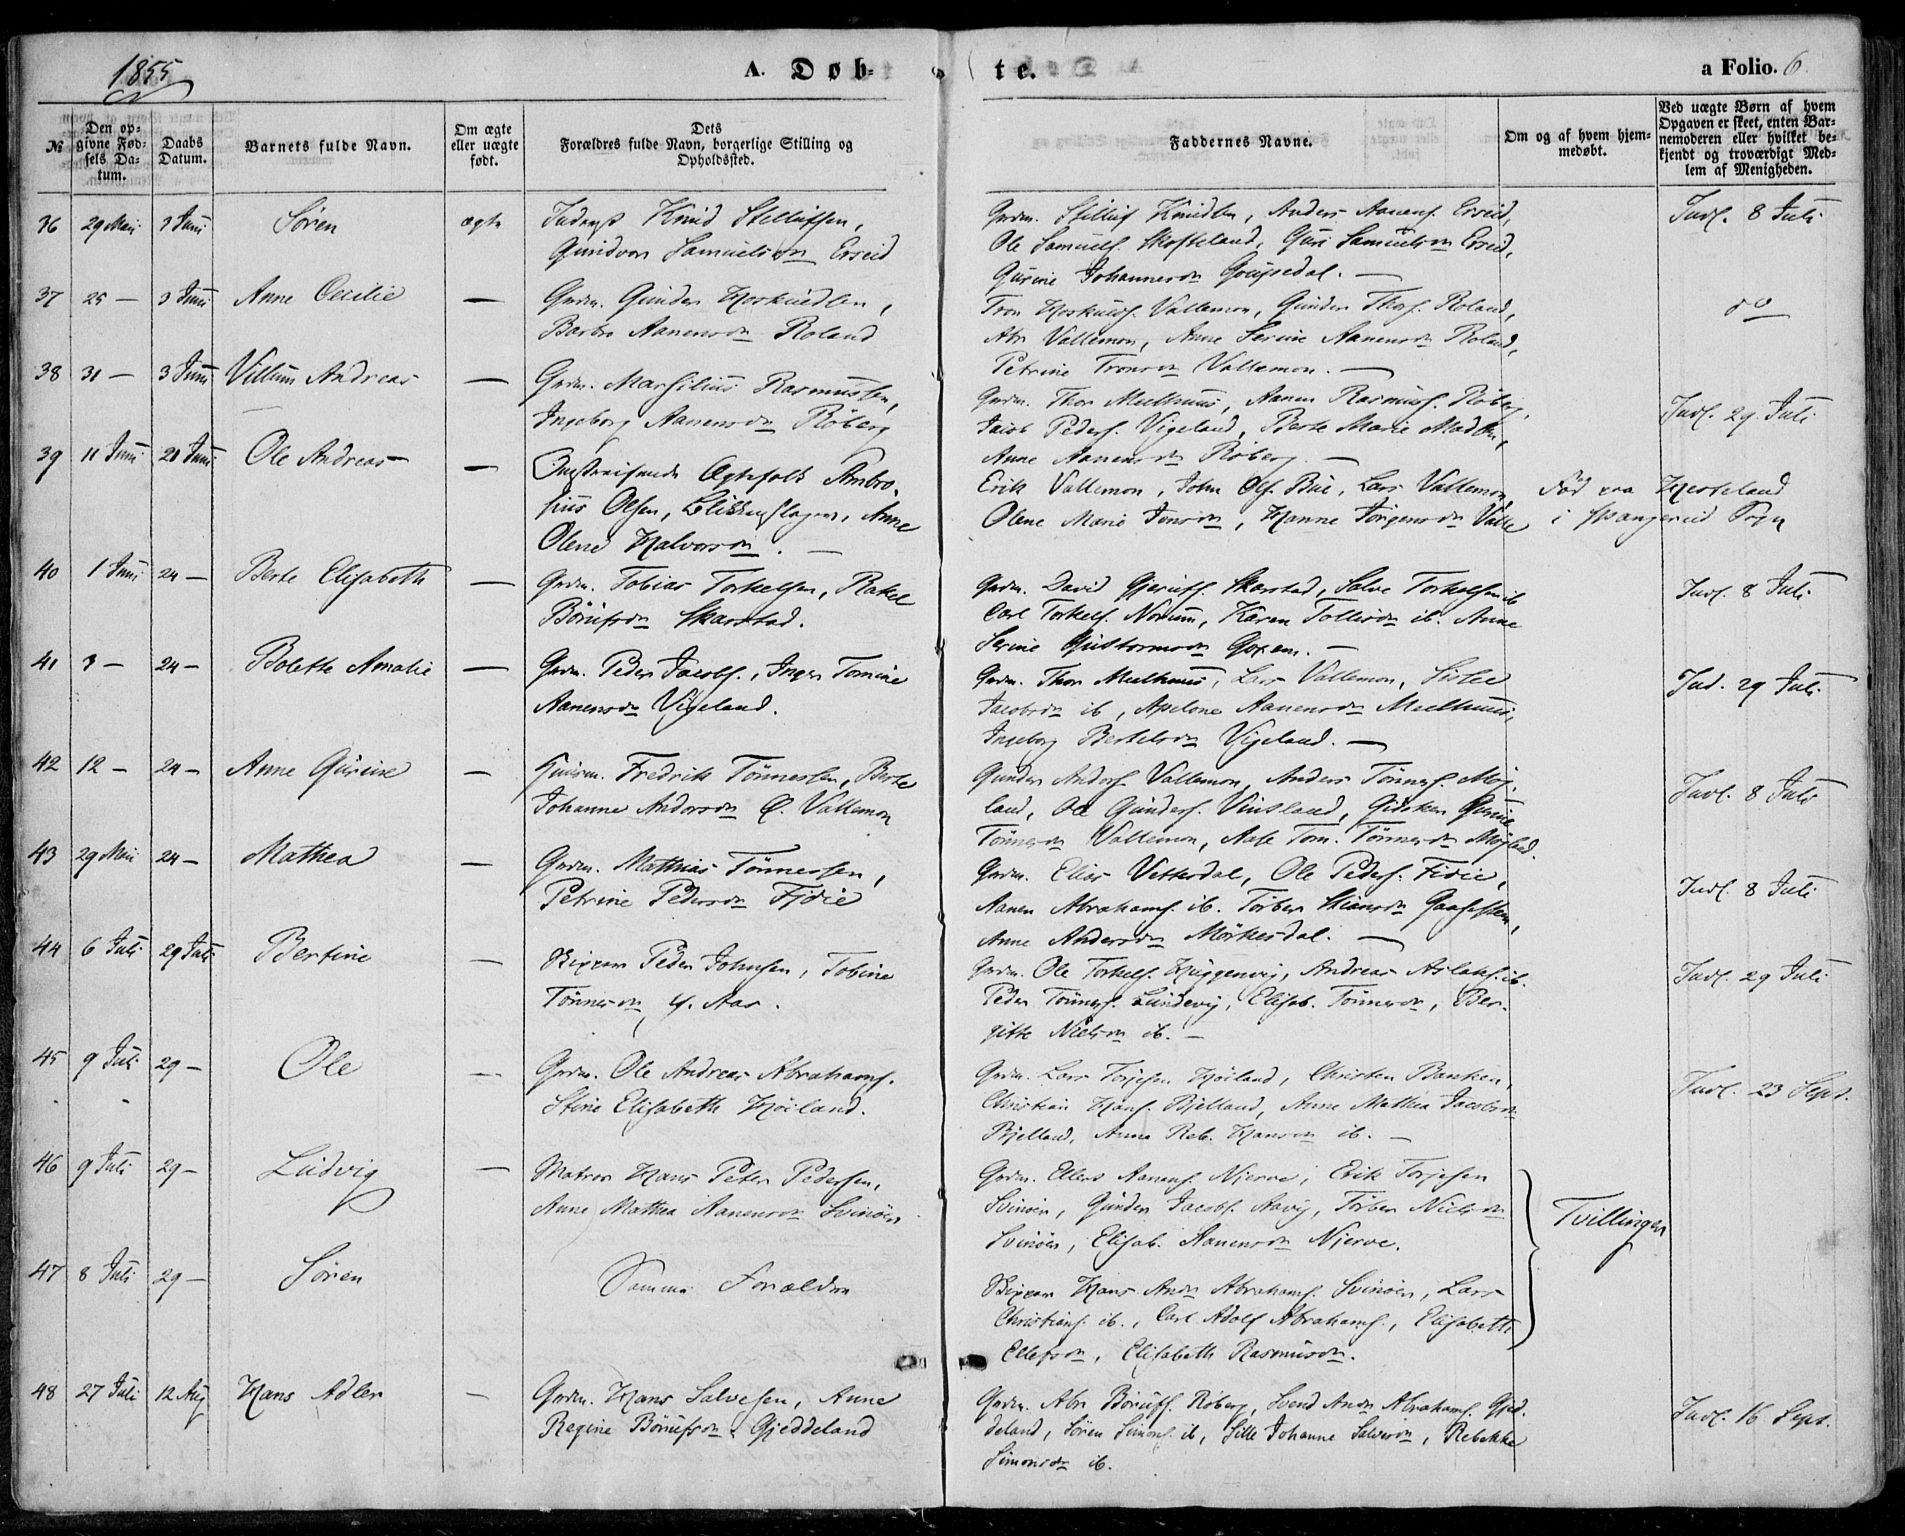 1855
A. Døb-
te.
a Folio. 6.
№
Den op-
givne Fød-
sels Da-
tum.
Daabs
Datum.
Barnets fulde Navn.
Om ægte
eller uægte
født.
Dets
Forældres fulde Navn, borgerlige Stilling og
Opholdssted.
Faddernes Navne.
Om og af hvem hjem-
medøbt.
Ved uægte Børn af hvem
Opgaven er skeet, enten Bar-
nemoderen eller hvilket be-
kjendt og troværdigt Med-
lem af Menigheden.
36 29 Mai 3 Juni Søren ægte
Knud
Samuelsdr
Grdm. Knudsen, Anders Aanens.
Ole Samuels. Guri Samuelsdr
Johannesdr
Indl. 8 Juli
37 25 — 3 Juni Anne Cecilie —
Grdm. Gunder
Aanensdr Roland
Vallemon, Gunder Roland,
Abr Vallemon, Anne Serine Aanensdr Roland,
Petrine Tronsdr Vallemon. —
do
38 31 — 3 Juni Villum Andreas —
Grdm. Marsilius Rasmussen,
Ingeborg Aanensdr Röberg
Grdm. Thor Meelhuus, Aanen Rasmuss. Röberg,
Jacob Peders. Vigeland, Berte Marie
Anne Aanensdr Röberg. —
Indl. 29 Juli
39 11 Juni 21 Juni Ole Andreas —
Omstreifende Ægtefolk Ambro-
sius Olsen, Blikkenslager, Anne
Olene Halvorsdr. —
Erik Vallemon, John Ols. Bue, Lars Vallemon,
Olene Marie Jensdr, Hanne Jörgensdr Valle
Fød paa
i Spangereid Sogn
40 1 Juni 24 — Berte Elisabeth —
Grdm. Tobias Torkelsen, Rakel
Börufsdr Skarstad.
Grdm. David Skarstad, Salve Torkelsen ib
Carl Torkels. Karen Tollisdr ib. Anne
Serine Guttormsdr
Indl. 8 Juli
41 3 — 24 — Bolette Amalie —
Grdm. Peder Jacobs., Inger Tomine
Aanensdr Vigeland.
Grdm. Thor Meelhuus, Lars Vallemon, Sissel
Jacobsdr ib, Apelone Aanensdr Meelhuus,
Ingeborg Bertelsdr Vigeland. —
Ind. 29 Juli
42 12 — 24 — Anne Gurine —
Fredrik Tönnessen, Berte
Johanne Andersdr Ö. Vallemon
Gunder Anders. Vallemon, Anders Tönnes. Möy-
land, Ole Gunders. Vinsland, Gurine
Tönnesdr Vallemon, Tom. Tönnesdr Möyland.
Indl. 8 Juli
43 29 Mai 24 — Mathea —
Grdm. Matthias Tönnessen,
Petrine Pedersdr Fidie
Grdm. Elias Vetterdal, Ole Peders. Fidie,
Aanen Abrahams. ib. Torber
Anne Andersdr Mörkesdal. —
Indl. 8 Juli
44 6 Juli 29 Juli Bertine —
Peder Johnsen, Tobine
Tönnesdr, Y. Aas.
Grdm. Ole Torkels. Andreas Aslaks. ib.
Peder Tönnes. Lundevig, Elisab. Tönnesdr, Ber-
gitte Nielsdr ib. —
Indl. 29 Juli
45 9 Juli 29 — Ole —
Grdm. Ole Andreas Abrahams.
Stine Elisabeth Höiland.
Grdm. Lars Torjesen Höiland, Christen
Christian Hans. Bjelland, Anne Mathea Jacobsdr
Bjelland, Anna Reb. Hansdr ib. —
Indl. 23 Sept.
46 9 Juli 29 — Ludvig —
Matros Hans Peter Pedersen,
Anne Mathea Aanensdr Svinöer
Grdm. Ellers Aanens. Njerve, Erik Torjesen
Svinöer, Gunder Jacobs. Aavig, Torber Nielsdr
Svinöer, Elisab. Aanensdr Njerve.
Tvillinger
47 8 Juli 29 — Søren
Samme Forældre
Hans Andr Abrahams. Svinöer, Lars
Christians. ib., Carl Adolf Abrahams., Elisabeth
Ellefsdr, Elisabeth Rasmusdr.
48 27 Juli 12 Aug Hans Adler —
Grdm. Hans Salvesen, Anne
Regine Börufsdr Gjeddeland
Grdm. Abr Börufs. Röberg, Svend Andr Abrahams. Gjed-
deland, Sören Simons. ib, Sille Johanne Salvesdr, Rebekke
Simonsdr ib.
Indl. 16 Sept.